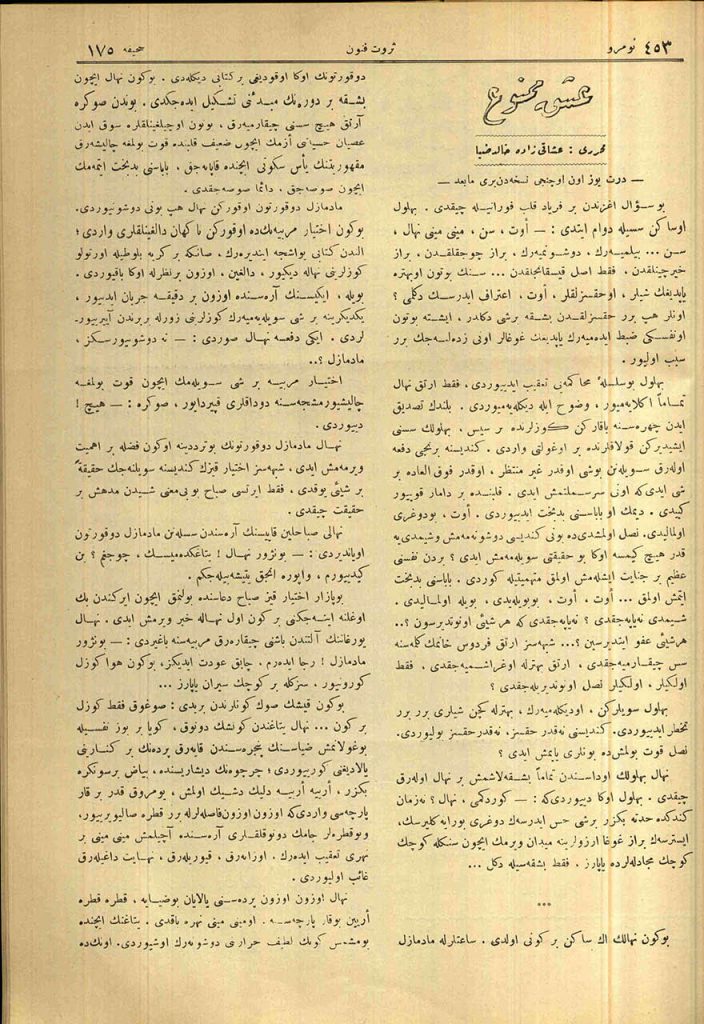 نومرو ٤٥٣
ثروت فنون
صحیفه ١٧٥
عشق ممنوع
محرری : عشاقی زاده خالد ضیا
— درت یوز اون اوچنجی نسخه‌دن‌بری مابعد —
بو سؤال اغزندن بر فریاد قلب فورانیله چیقدی . بهلول
اوساکن سسیله دوام ایتدی : — أوت ، سن ، مینی مینی نهال ،
سن ... بیلمیه‌رك ، دوشونمیه‌رك ، براز چوجقلقدن ، براز
خیرچینلقدن . فقط اصل قیسقانجلقدن ... سنك بوتون اوبهتره
یاپدیغك شیلر ، اوحقسزلقلر ، أوت ، اعتراف ایدرسك دکلمی ؟
اونلر هپ برر حقسزلقدن بشقه برشی دکلدر ، ایشته بوتون
اونفسکی ضبط ایده‌میه‌رك یاپدیغك غوغالر اونی زده‌له‌یه‌جك برر
سبب اولیور .
بهلول بوسلسلهٔ محاکمه‌یی تعقیب ایدییوردی ، فقط ارتق نهال
تمـاماً اکلایه‌میور ، وضوح ایله دیکله‌یه‌میوردی . بلندك تصدیق
ایدن چهره‌سنه باقارکن کوزلرنده بر سیس ، بهلولك سسنی
ایشیدیرکن قولاقلرنده بر اوغولتی واردی . کندیسنه برنجی دفعه
اوله‌رق سویله‌نن بوشی اوقدر غیر منتظر ، اوقدر فوق العاده بر
شی ایدی‌که اونی سرسملتمش ایدی . قلبنده بر دامار قوپیور
کبیدی . دیمك او باباسنی بدبخت ایدییوردی . أوت ، بودوغری
اولمالیدی. نصل اولمشدی‌ده بونی کندیسی دوشونه‌مه‌مش وشیمدی‌یه
قدر هیچ کیمسه اوکا بو حقیقتی سویله‌مه‌مش ایدی ؟ بردن نفسنی
عظیم بر جنایت ایشله‌مش اولمق متهمیتیله کوردی . باباسنی بدبخت
ایتمش اولمق ... أوت ، أوت ، بویویله‌یدی ، بویله اولمالیدی .
شیمدی نه‌یاپه‌جقدی ؟ نه‌یاپه‌جقدی که هرشیئی اونوتدیرسون ؟..
هرشیئی عفو ایتدیرسین ؟... شبهه‌سز ارتق فردوس خانمك کله‌سنه
سس چیقـارمیه‌جقدی ، ارتق بهترله اوغراشمیه‌جقدی . فقط
اولکیلر ، اولکیلر نصل اونوتدیریله‌جقدی ؟
بهلول سویلرکن ، اودیکله‌میه‌رك ، بهترله کچن شیلری برر برر
تخطر ایدییوردی. کندیسنی نه‌قدر حقسز، نه‌قدرحقسز بولیوردی.
نصل قوت بولمش‌ده بونلری یاپمش ایدی ؟
نهال بهلولك اوداسـندن تماماً بشقه‌لاشمش بر نهال اوله‌رق
چیقدی . بهلول اوکا دییوردی‌که : — کوردکمی ، نهال ؟ نه‌زمان
کندکده حدته بکزر برشی حس ایدرسه‌ك دوغری بورایه کلیرسك،
ایسترسه‌ك براز غوغا ارزولرینه میدان ویرمك ایچون سنکله کوچك
کوچك مجادله‌لرده یاپارز . فقط بشقه‌سیله دکل ...
***
بوکون نهالك اك ساکن بر کونی اولدی . ساعتلرله مادمازل
دوقورتونك اوکا اوقودیغی بر کتابی دیکله‌دی . بوکون نهال ایچون
بشقه بر دوره‌نك مبدئنی تشکیل ایده‌جکدی . بوندن صوکره
آرتق هیچ سسنی چیقارمیه‌رق ، بوتون اوچیلغینلقلره سوق ایدن
عصیان حسیاتنی ازمك ایچون ضعیف قلبنده قوت بولمغه چالیشه‌رق
مقهوریتنك یأس سکونی ایچنده قاپانه‌جق ، باباسنی بدبخت ایتمه‌مك
ایچون صوصه‌جق ، دائما صوصه‌جقدی .
مادمازل دوقورتون اوقورکن نهال هپ بونی دوشونیوردی.
بوکون اختیار مربیه‌نك‌ده اوقورکن ناکهان دالغینلقلری واردی ؛
الندن کتابی یواشجه ایندیره‌رك ، صانکه بر کریه بلوطیله اورتولو
کوزلرینی نهاله دیکیور ، دالغین ، اوزون برنظرله اوکا باقیوردی .
بویله ، ایکیسنك آره‌سنده اوزون بر دقیقه جریان ایدییور ،
یکدیکرینه بر شی سویله‌یه‌میه‌رك کوزلرینی زورله بربرندن آییریور-
لردی . ایکی دفعه نهـال صوردی : — نه دوشونیورسکز ،
مادمازل ؟..
اختیـار مربیـه بر شی سویله‌مك ایچون قوت بولمغه
چالیشیورمشجه‌سنه دوداقلری قیپردایور ، صوکره : — هیچ !
دییوردی .
نهـال مادمازل دوقورتونك بوترددینه اوکون فضله بر اهمیت
ویرمه‌مش ایدی ، شبهه‌سز اختیار قیزك کندیسنه سویلنه‌جك حقیقةً
بر شیئی یوقدی ، فقط ایرتسی صباح بوبی‌معنی شیدن مدهش بر
حقیقت چیقدی .
نهالی صباحلین قاپیسنك آره‌سندن سسله‌نن مادمازل دوقورتون
اویاندیردی : — بونژور نهال ! یتاغکده‌میسك ، چوجغم ؟ بن
کیدییورم ، واپوره انجق یتیشه‌بیله‌جکم .
بوپازار اختیار قیز صباح دعاسنده بولنمق ایچون ایرکندن بك
اوغلنه اینه‌جکنی بر کون اول نهـاله خبر ویرمش ایدی . نهـال
یورغاننك آلتندن باشنی چیقاره‌رق مربیه‌سنه باغیردی : — بونژور
مادمازل ! رجا ایده‌رم . چابق عودت ایدیکز، بوکون هوا کوزل
کورونیور . سزکله بر کوچك سیران یاپارز ...
بوکون قیشك صوك کونلرندن بریدی : صوغوق فقط کوزل
بر کون ... نهال یتاغندن کونشك دونوق ، کویا بر بوز نفسیله
بوغولانمش ضیاسنك پنجره‌سندن قایه‌رق پرده‌نك بر کنارینی
یالادیغنی کورییوردی ؛ چرچوه‌نك دیشاریسنده ، بیاض برسونکره
بکزر ، أرییه أرییه دلیك دشیك اولمش ، یومروق قدر بر قار
پارچه‌سی واردی‌که اوزون اوزون‌فاصله‌لرله برر قطره صالیویرییور،
وبوقطره‌لر جامك دونوقلقلری آره‌سنده آچیلمش مینی مینی بر
نهری تعقیب ایده‌رك ، اوزانه‌رق ، قیوریله‌رق ، نهـایت داغیله‌رق
غائب اولیوردی .
نهال اوزون اوزون پرده‌سنی یالایان بوضیایه ، قطره قطره
أرییین بوقار پارچه‌سنه . اومینی مینی نهره باقدی . یتاغنك ایچنده
بومشمس کونك لطیف حرارتنی دوشونه‌رك اوشیوردی . اونك‌ده